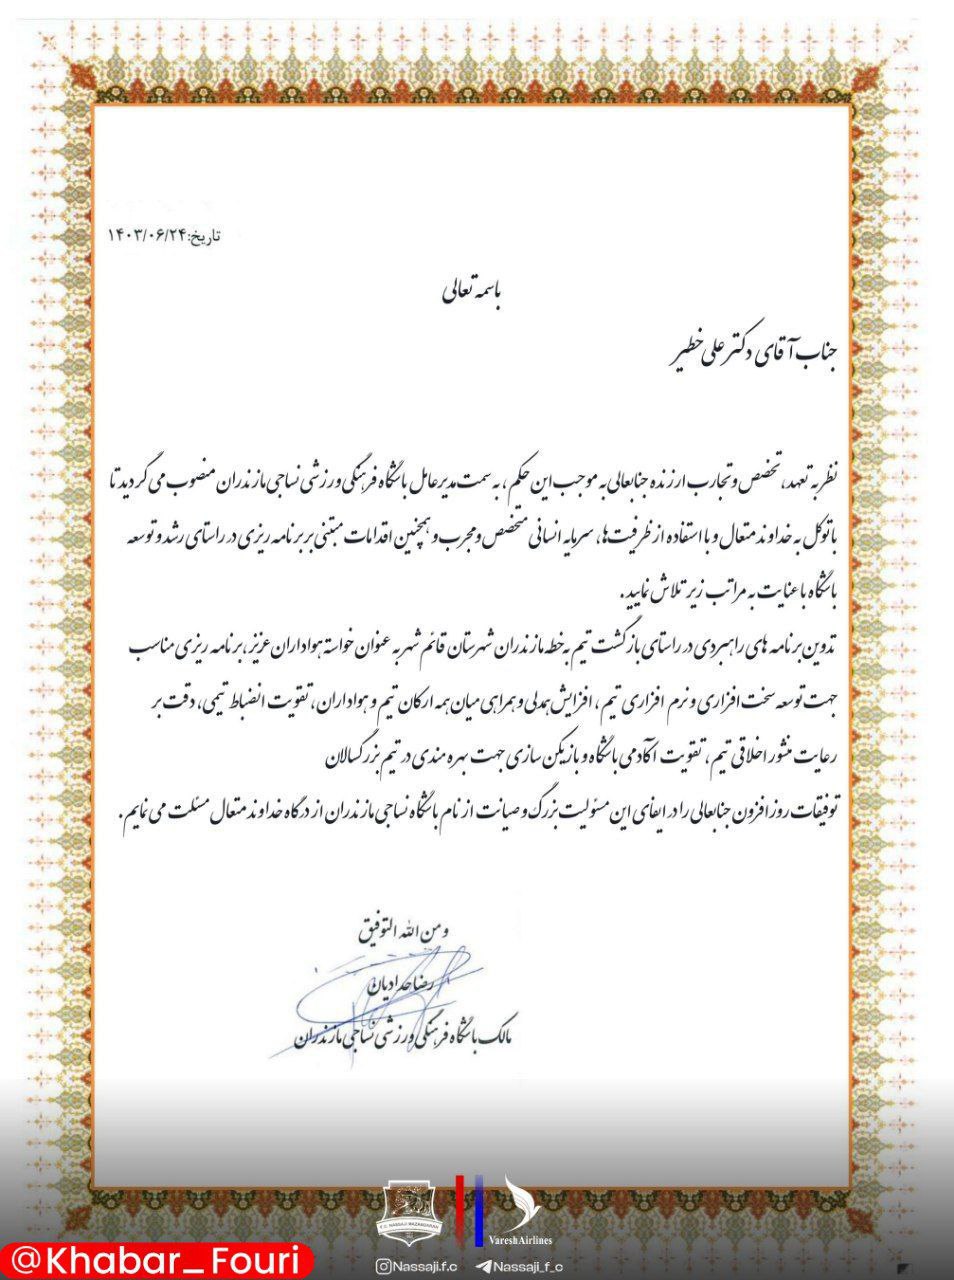 تاریخ:۱۴۰۳/۰۶/۲۴
باسمه تعالی
جناب آقای دکتر علی خطیر
نظر به تعهد، تخصص و تجارب ارزنده جنابعالی به موجب این حکم، به سمت مدیرعامل باشگاه فرهنگی ورزشی نساجی مازندران منصوب می گردید تا
با توکل به خداوند متعال و با استفاده از ظرفیت ها، سرمایه انسانی متخصص و مجرب و همچنین اقدامات مبتنی بر برنامه ریزی در راستای رشد و توسعه
باشگاه با عنایت به مراتب زیر تلاش نمایید.
تدوین برنامه های راهبردی در راستای بازگشت تیم به خطه مازندران شهرستان قائم شهر به عنوان خواسته هواداران عزیز، برنامه ریزی مناسب
جهت توسعه سخت افزاری و نرم افزاری تیم، افزایش همدلی و همراهی میان همه ارکان تیم و هواداران، تقویت انضباط تیمی، دقت بر
رعایت منشور اخلاقی تیم، تقویت آکادمی باشگاه و بازیکن سازی جهت بهره مندی در تیم بزرگسالان
توفیقات روزافزون جنابعالی را در ایفای این مسئولیت بزرگ و صیانت از نام باشگاه نساجی مازندران از درگاه خداوند متعال مسئلت می نمایم.
و من الله التوفیق
رضا حدادیان
مالک باشگاه فرهنگی ورزشی نساجی مازندران
F.C. NASSAJI MAZANDARAN
VareshAirlines
Nassaji.f.c
Nassaji_f_c
@Khabar_Fouri